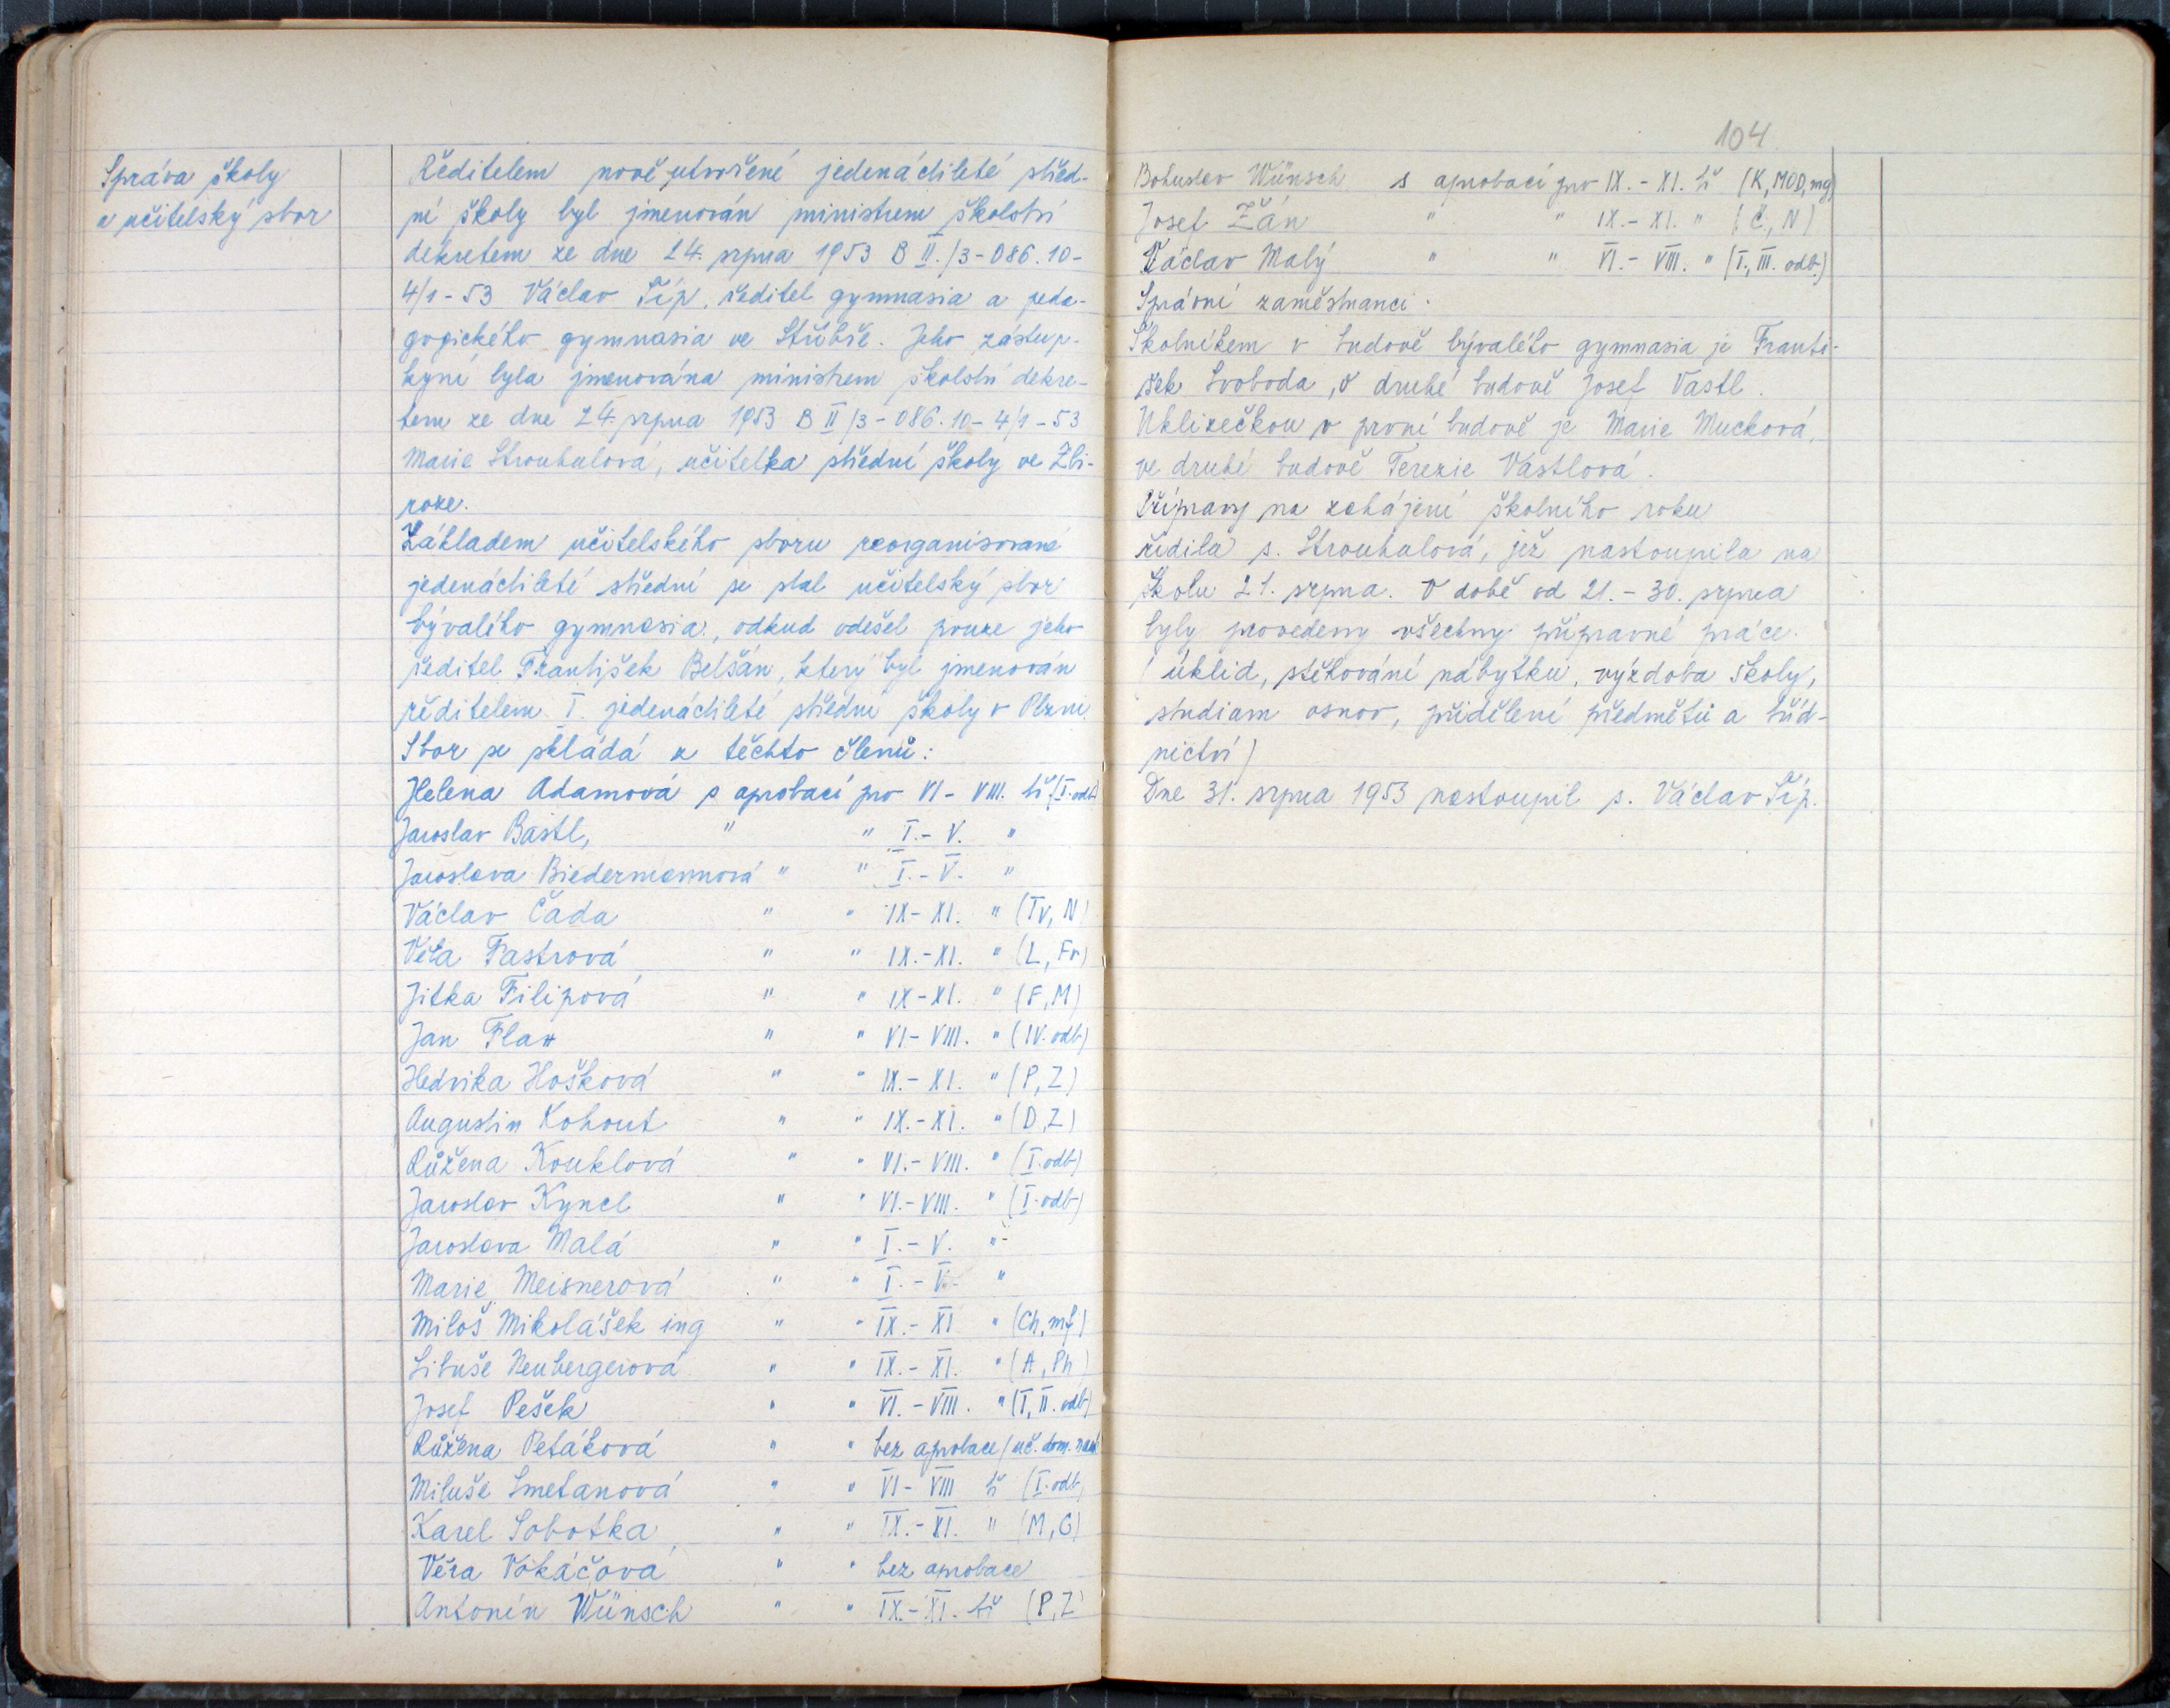 Správa školy
a učitelský sbor
Ředitelem nově utvořené jedenáctileté střed-
ní školy byl jmenován ministrem školství
dekretem ze dne 24. srpna 1953 B II./3-086.10-
4/1-53 Václav Říp, ředitel gymnasia a peda-
gogického gymnasia ve Stříbře. Jeho zástup-
kyní byla jmenována ministrem školství dekre-
tem ze dne 24. srpna 1953 B II/3-086.10-4/1-53
Marie Strouhalová, učitelka střední školy ve Zbi-
roze.
Základem učitelského sboru reorganisované
jedenáctileté střední se stal učitelský sbor
bývalého gymnasia, odkud odešel pouze jeho
ředitel František Belšán, který byl jmenován
ředitelem I. jedenáctileté střední školy v Plzni.
Sbor se skládá z těchto členů:
Helena Adamová s aprobací pro VI- VIII. tř. (I. odb)
Jaroslav Bastl, " " I.- V. "
Jaroslava Biedermannová " " I.- V. "
Václav Čada " " IX- XI. " (Tv, N)
Věra Fastrová " " IX.-XI. " (L, Fr)
Jitka Filipová " " IX-XI. " (F, M)
Jan Flax " " VI- VIII. " (IV. odb)
Hedvika Hošková " " IX.- XI. " (P, Z)
Augustin Kohout " " IX.-XI. " (D, Z)
Růžena Kouklová " " VI.- VIII. " (I. odb)
Jaroslav Kyncl " " VI.-VIII. " (I. odb)
Jaroslava Malá " " I.- V. "
Marie Meisnerová " " I.- V. "
Miloš Mikolášek ing " " IX.- XI " (Ch, mf)
Libuše Neubergerová " " IX.- XI. " (A, Ph)
Josef Pešek " " VI.- VIII. " (I, II. odb)
Růžena Petáková " " bez aprobace (uč. dom. nauk
Miluše Smetanová " " VI- VIII tř (I. odb
Karel Sobotka " " IX.- XI. " (M, G)
Věra Vokáčová " " bez aprobace
Antonín Wünsch " " IX.- XI. tř (P, Z
104
Bohuslav Wünsch s aprobací pro IX.- XI. tř (K, MOD, mg)
Josef Žán " " IX.- XI. " (Č, N)
Václav Malý " " VI.- VIII. " (I., III. odb.)
Správní zaměstnanci.
Školníkem v budově bývalého gymnasia je Franti-
šek Svoboda, v druhé budově Josef Vastl.
Uklizečkou v první budově je Marie Mucková,
ve druhé budově Terezie Vastlová.
Přípravy na zahájení školního roku
řídila s. Strouhalová, jež nastoupila na
školu 21. srpna. V době od 21.- 30. srpna
byly provedeny všechny přípravné práce.
( úklid, stěhování nábytku, výzdoba školy,
studiam osnov, přidělení předmětů a tříd-
nictví)
Dne 31. srpna 1953 nastoupil s. Václav Říp.